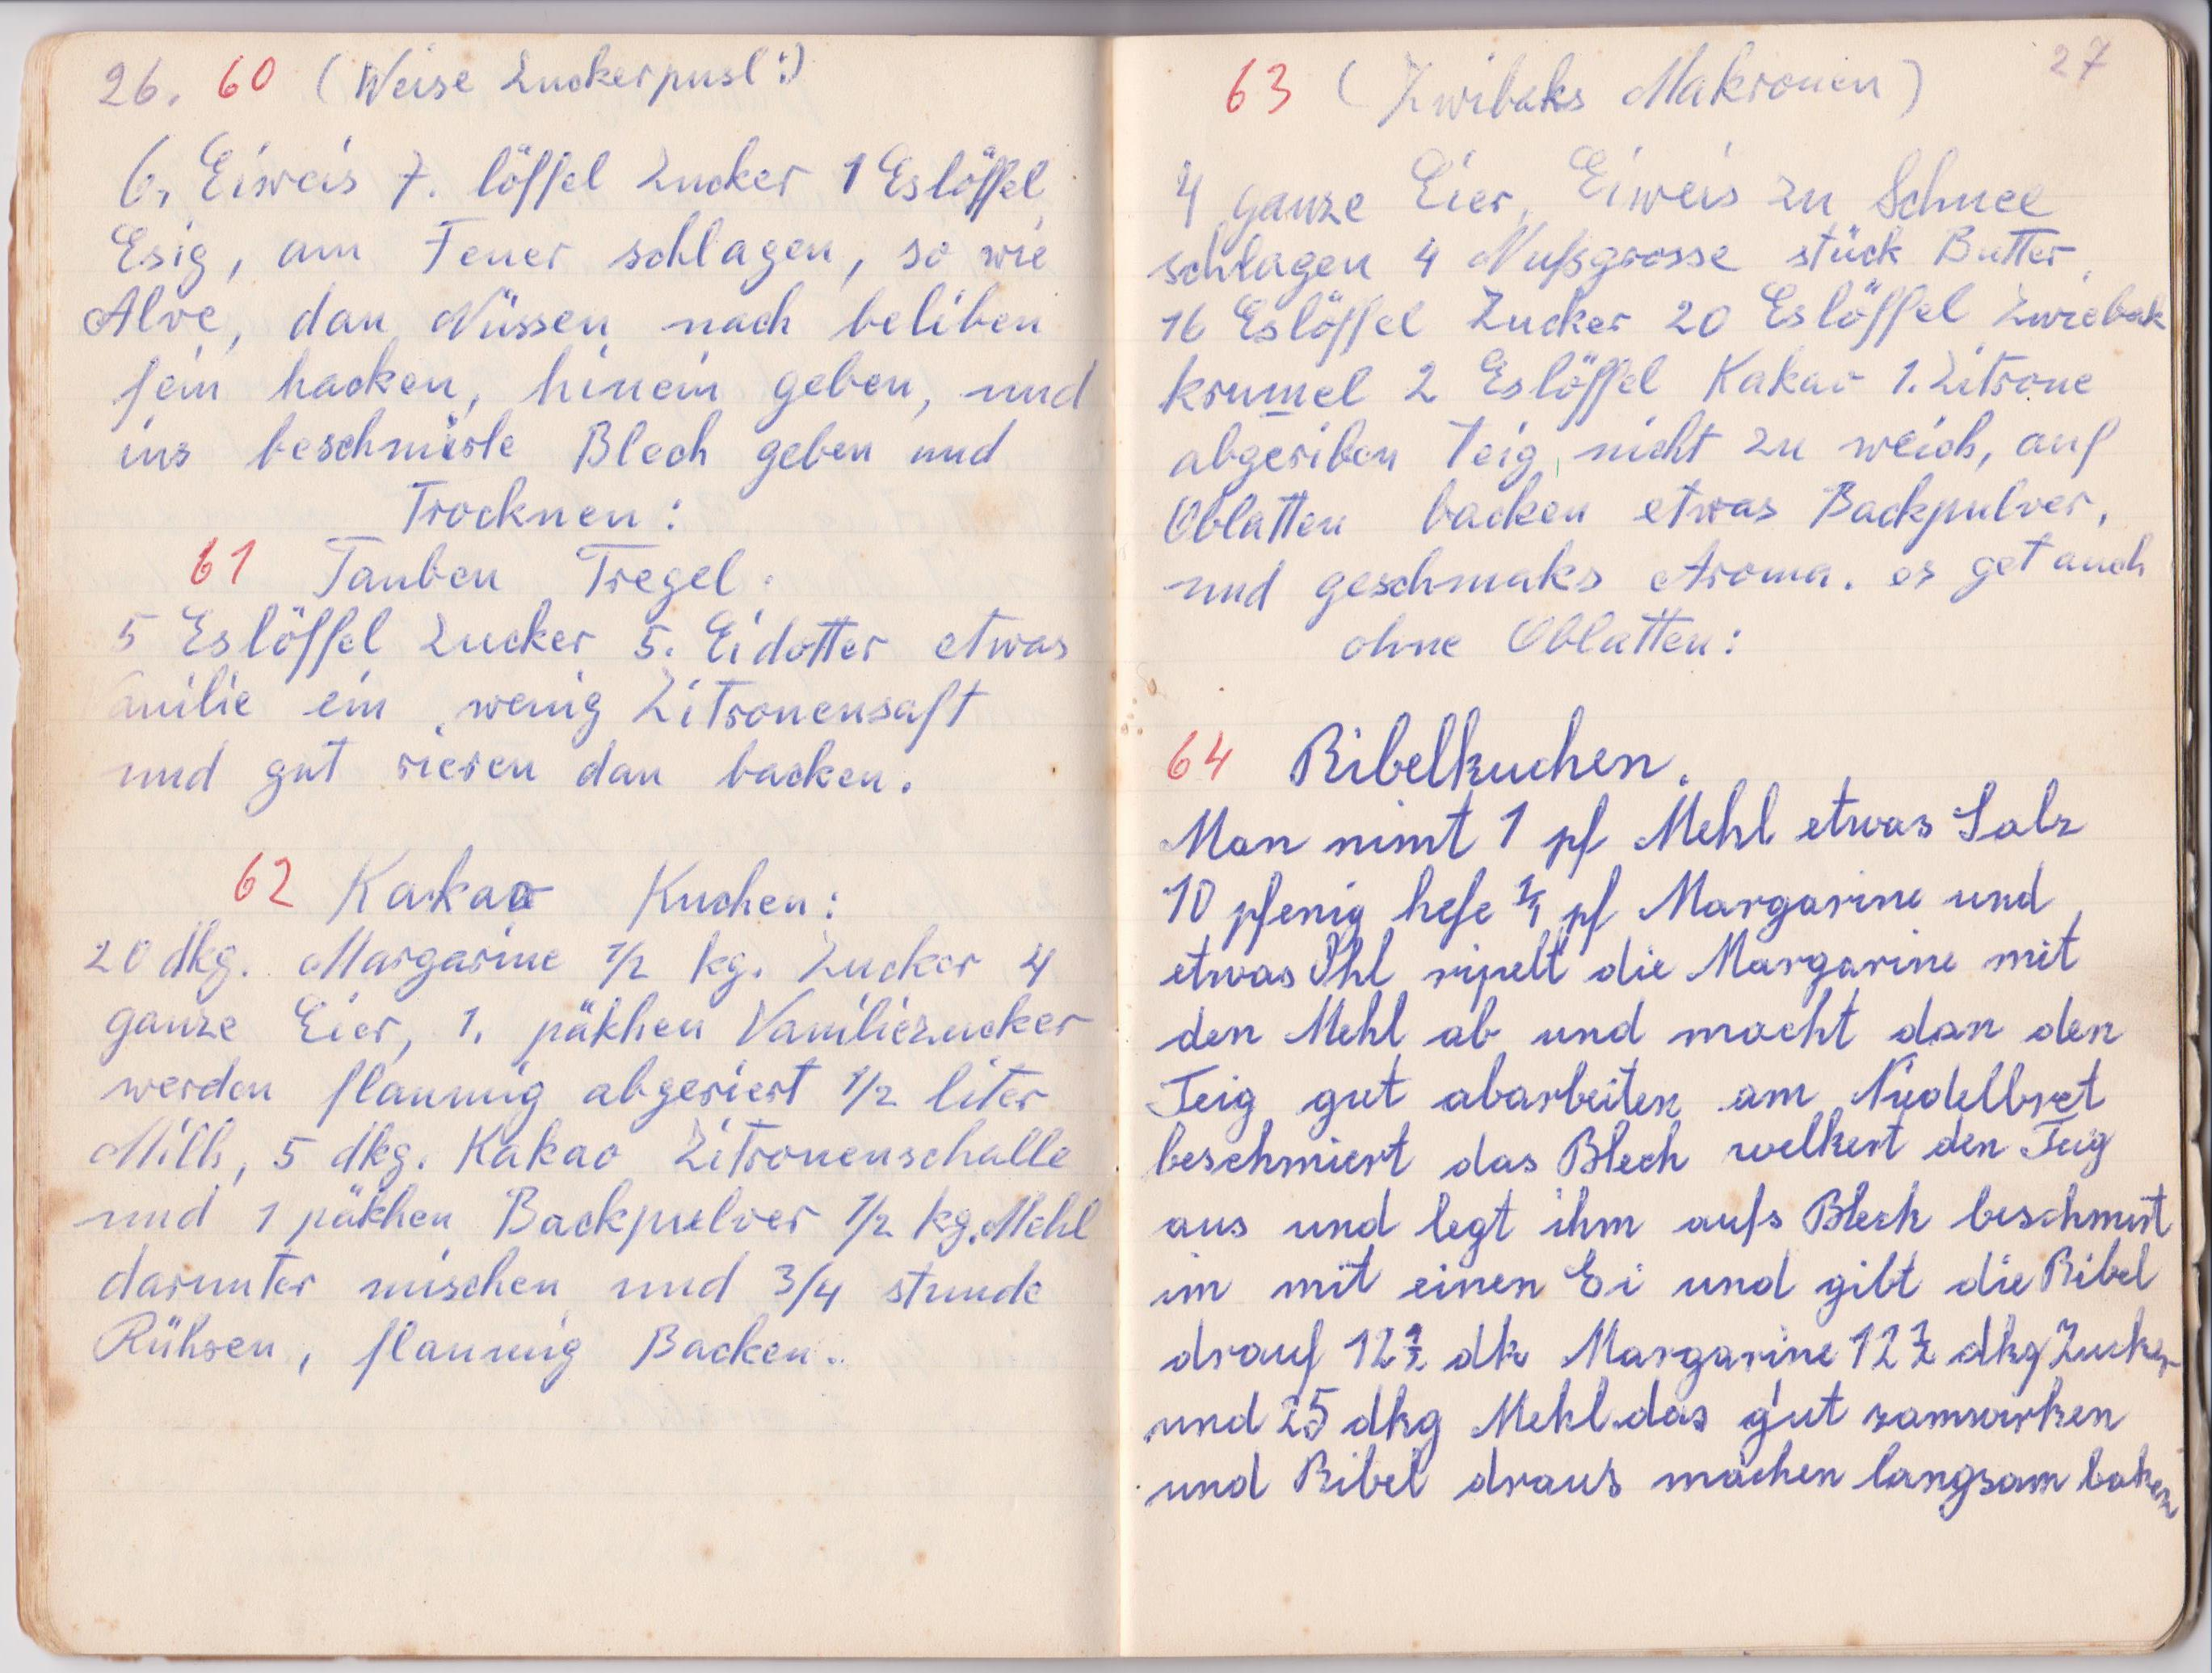 26. 60 (Weise Zuckerpusl:)
6, Eiweis 7. löffel Zucker 1 Eslöffel
Esig, am Feuer schlagen, so wie
Alve, dan Nüssen nach beliben
fein hacken, hinein geben, und
ins beschmirte Blech geben und
Trocknen:
61 Tauben Tregel.
5 Eslöffel Zucker 5. Eidotter etwas
anilie ein wenig Zitronensaft
und gut rieren dan backen.
62 Kakao Kuchen:
20 dkg. Margarine 1/2 kg. Zucker 4
ganze Eier, 1. päkhen Vaniliezucker
werden flaumig abgeriert 1/2 liter
Milh, 5 dkg. Kakao Zitronenschalle
und 1 päkhen Backpulver 1/2 kg. Mehl
darunter mischen und 3/4 stunde
Rühren, flaumig Backen..
27
63 (Zwibaks Makronen)
4 ganze Eier, Eiweis zu Schnee
schlagen 4 Nußgrosse stück Butter,
16 Eslöffel Zucker 20 Eslöffel Zwiebak
krumel 2 Eslöffel Kakao 1. Zitrone
abgeriben Teig, nicht zu weich, auf
Oblatten backen etwas Backpulver,
und geschmaks Aroma. es get auch
ohne Oblatten:
64 Ribelkuchen.
Man nimt 1 pf Mehl etwas Salz
10 pfenig hefe 1/4 pf Margarine und
etwas Öhl ripelt die Margarine mit
den Mehl ab und macht dan den
Teig gut abarbeiten am Nudelbret
beschmiert das Blech welkert den Teig
aus und legt ihm aufs Blech beschmirt
im mit einen Ei und gibt die Ribel
drauf 12 1/2 dk Margarine 12 1/2 dkg Zucker
und 25 dkg Mehl das gut zamwirken
und Ribel draus machen langsam baken